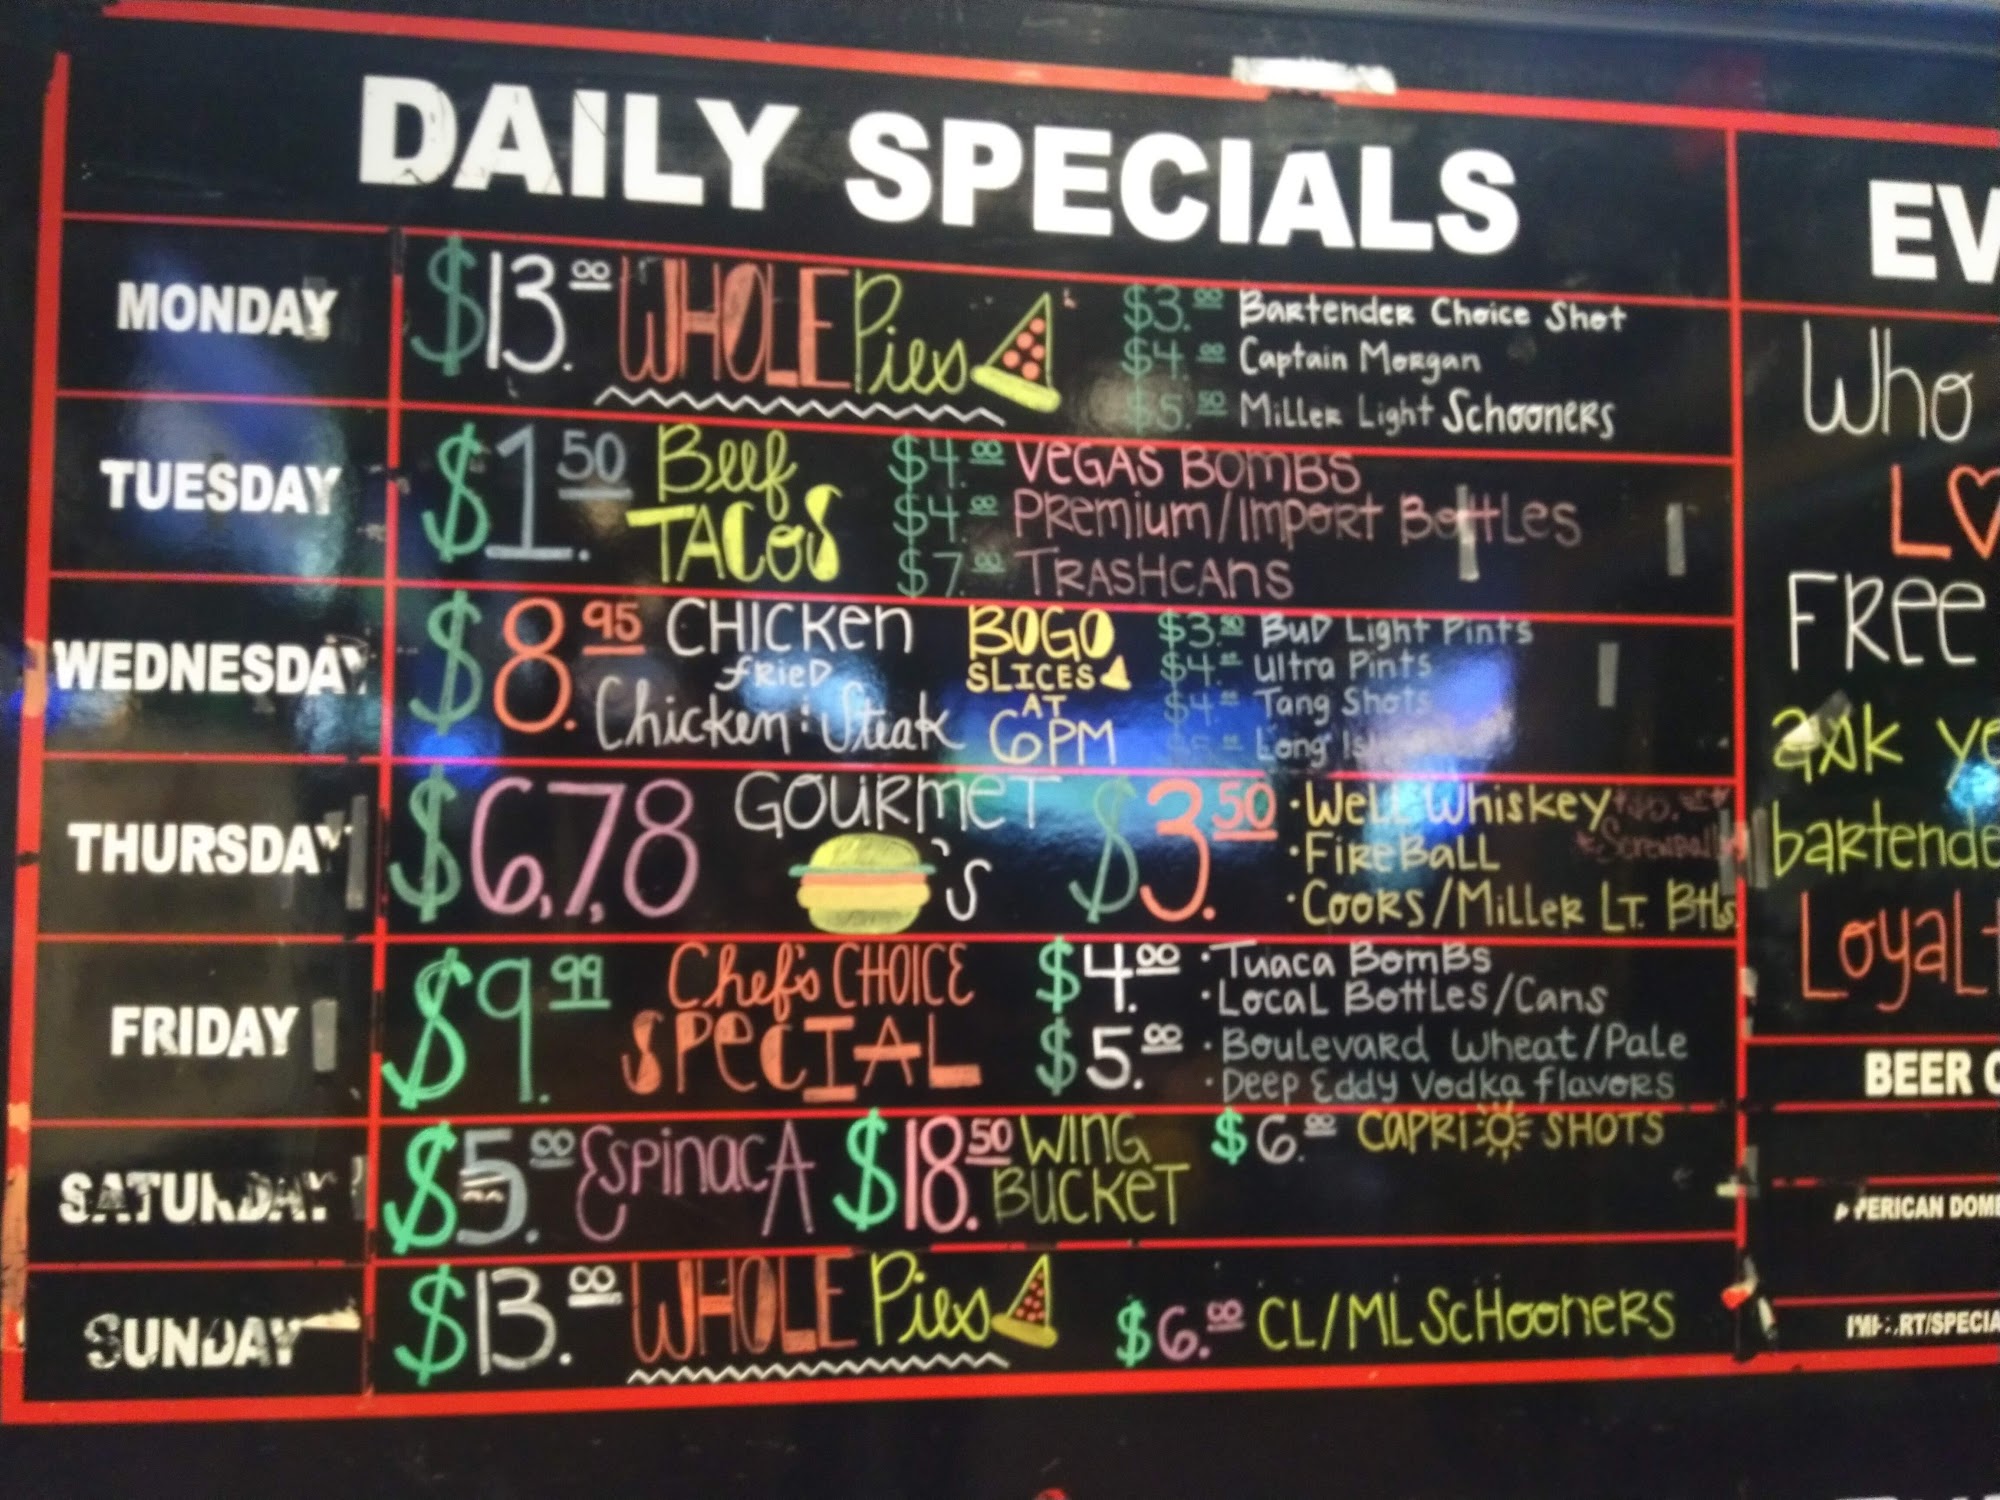 DAILY SPECIALS
MONDAY
$13.00 WHOLE Pies
$3.00 Bartender Choice Shot
$4.00 Captain Morgan
$5.50 Miller Light Schooners
TUESDAY
$1.50 Beef TACOS
$4.00 VEGAS BOMBS
$4.00 Premium/Import Bottles
$7.00 TRASHCANS
WEDNESDAY
$8.95 CHICKEN
fRIED
Chicken : Steak
BOGO
SLICES
AT
6PM
$3.50 BUD Light Pints
$4.00 Ultra Pints
$4.00 Tang Shots
Long
THURSDAY
$6,7,8 GOURMET 'S
$3.50
·Well Whiskey
·FIREBALL
·COORS/MILLER LT. Btls
*Screwball
FRIDAY
$9.99 Chef's CHOICE
SPECIAL
$4.00 ·Tuaca Bombs
·Local Bottles/Cans
$5.00 ·Boulevard Wheat/Pale
·Deep Eddy Vodka flavors
SATURDAY
$5.00 EspinacA
$18.50 WING
BUCKET
$6.00 CAPRI SHOTS
SUNDAY
$13.00 WHOLE Pies
$6.00 CL/ML SCHOONERS
EV
Who
L♡
FREE
ask ye
bartende
Loyalt
BEER C
AMERICAN DOME
IMPORT/SPECIA